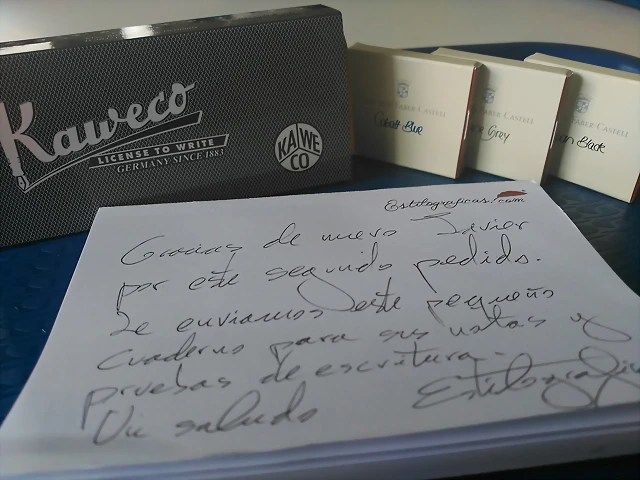 Kaweco
LICENSE TO WRITE
GERMANY SINCE 1883
KA WE CO
FABER CASTELL
Cobalt Blue
CASTELL
Grey
FABER CASTELL
Black
Estilograficas.com
Gracias de nuevo Javier
por este segundo pedido.
Le enviamos este pequeño
cuaderno para sus notas y
pruebas de escritura.
Un saludo